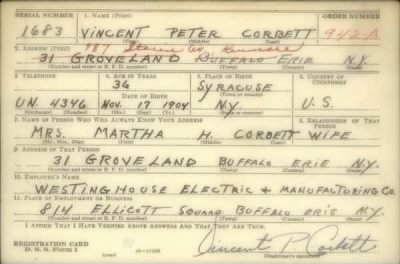 SERIAL NUMBER 1. NAME (Print) ORDER NUMBER
1683 VINCENT PETER CORBETT 942-A
(First) (Middle) (Last)
2. ADDRESS (Print) 87
31 GROVELAND BUFFALO ERIE N.Y.
(Number and street or R. F. D. number) (Town) (County) (State)
3. TELEPHONE 4. AGE IN YEARS 5. PLACE OF BIRTH 6. COUNTRY OF CITIZENSHIP
36 SYRACUSE
DATE OF BIRTH (Town or county)
UN. 4346 NOV. 17 1904 N.Y. U.S.
(Exchange) (Number) (Mo.) (Day) (Yr.) (State or country)
7. NAME OF PERSON WHO WILL ALWAYS KNOW YOUR ADDRESS 8. RELATIONSHIP OF THAT PERSON
MRS. MARTHA H. CORBETT WIFE
(Mr., Mrs., Miss) (First) (Middle) (Last)
9. ADDRESS OF THAT PERSON
31 GROVELAND BUFFALO ERIE N.Y.
(Number and street or R. F. D. number) (Town) (County) (State)
10. EMPLOYER'S NAME
WESTINGHOUSE ELECTRIC & MANUFACTURING CO.
11. PLACE OF EMPLOYMENT OR BUSINESS
814 ELLICOTT SQUARE BUFFALO ERIE N.Y.
(Number and street or R. F. D. number) (Town) (County) (State)
I AFFIRM THAT I HAVE VERIFIED ABOVE ANSWERS AND THAT THEY ARE TRUE.
REGISTRATION CARD
D. S. S. Form 1 (over) Vincent P. Corbett
(Registrant's signature)